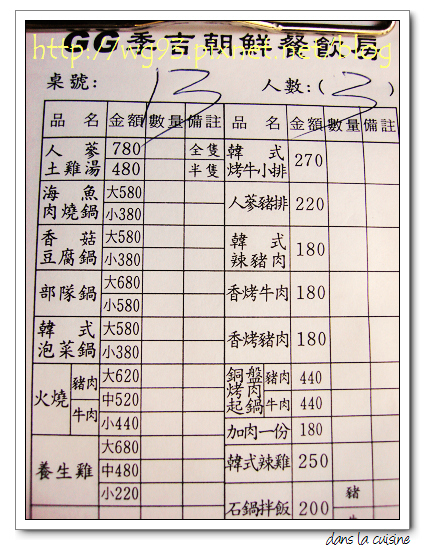 GG香吉朝鮮餐飲房
http://wg93.pixnet.net/blog
桌號: 13 人數:(3)
品名 金額 數量 備註 品名 金額 數量 備註
人蔘土雞湯 780 全隻
480 半隻
韓式烤牛小排 270
海魚肉燒鍋 大580
小380
人蔘豬排 220
香菇豆腐鍋 大580
小380
韓式辣豬肉 180
部隊鍋 大680
小580
香烤牛肉 180
韓式泡菜鍋 大580
小380
香烤豬肉 180
火燒 豬肉 牛肉 大620
中520
小440
銅盤烤肉起鍋 豬肉 440
牛肉 440
加肉一份 180
養生雞 大680
中480
小220
韓式辣雞 250
石鍋拌飯 200 豬
dans la cuisine